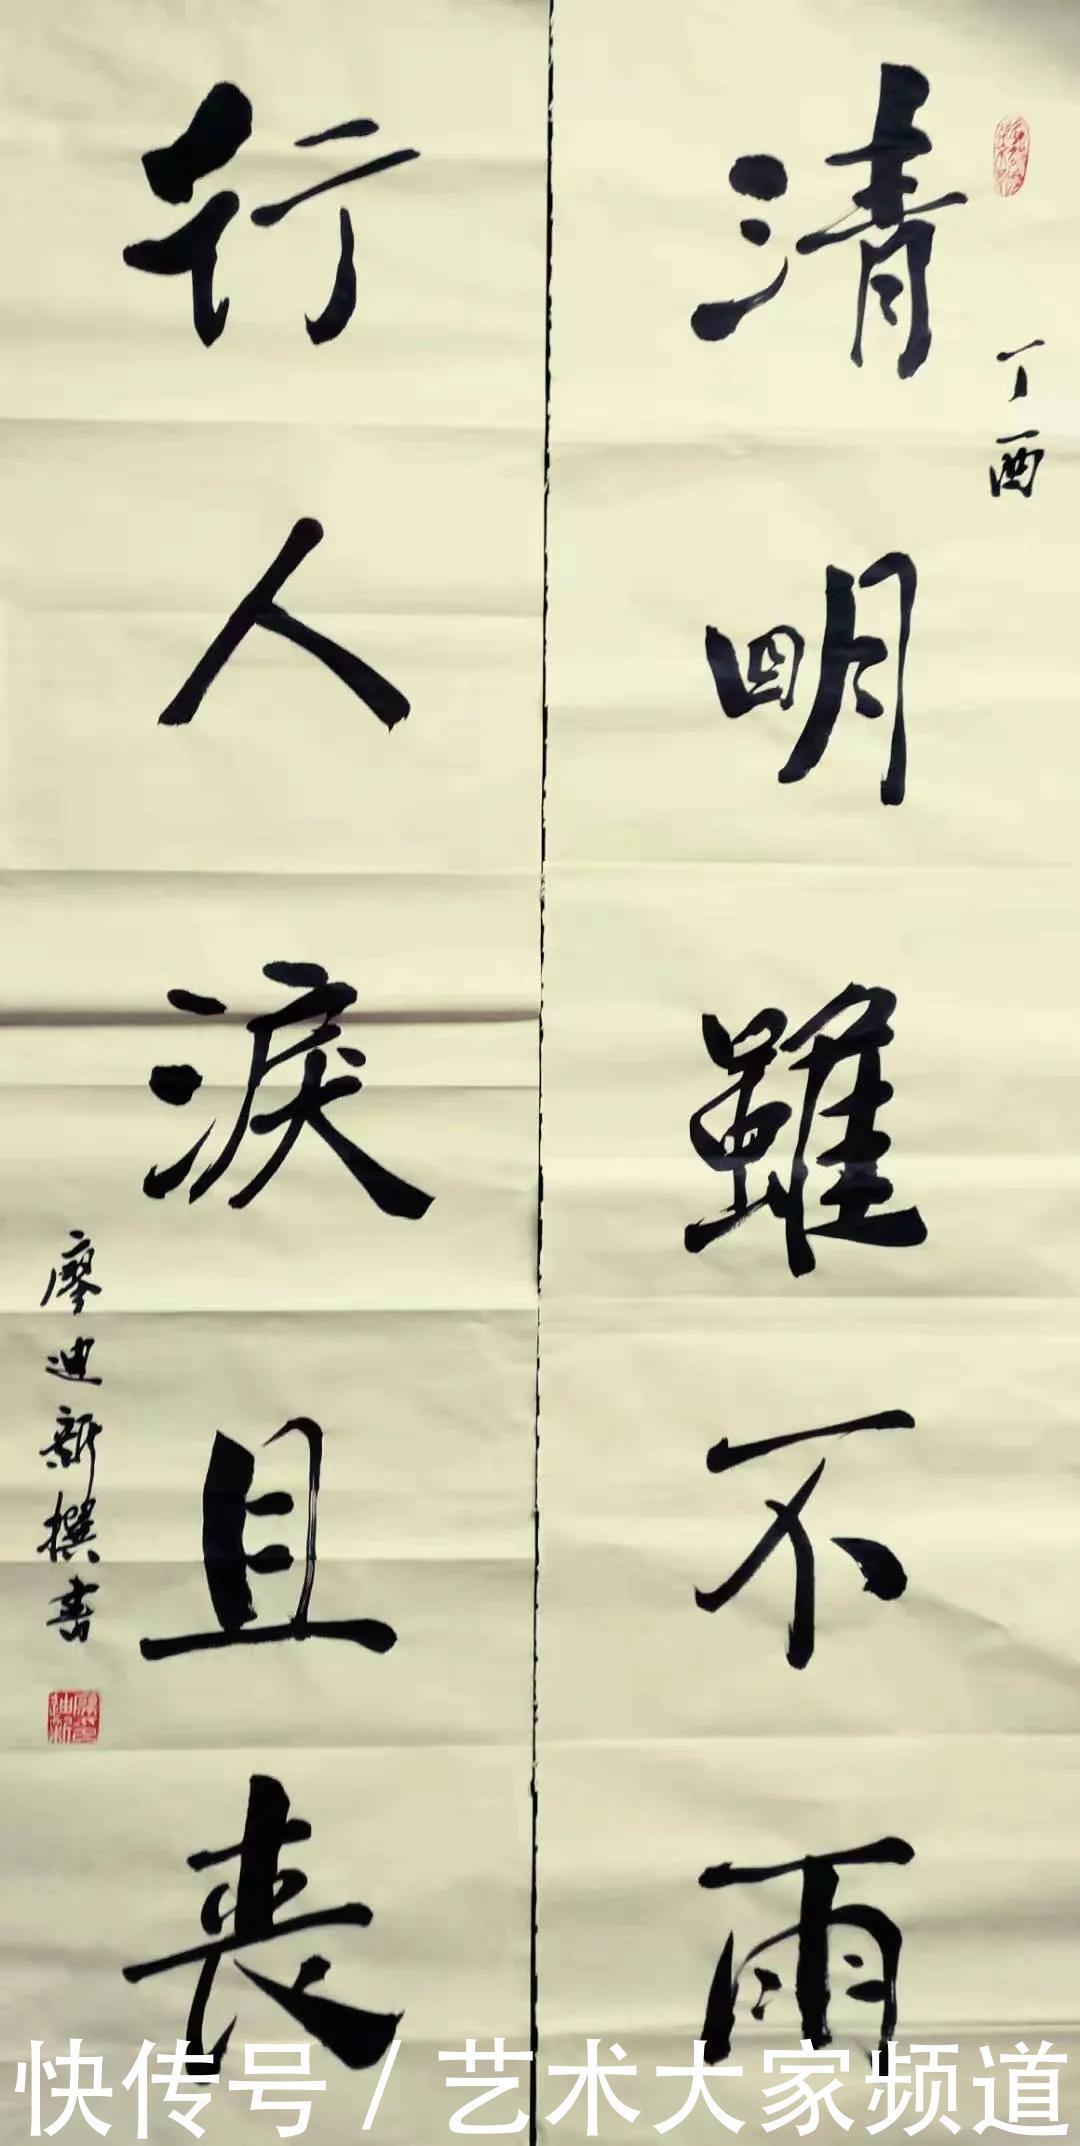 丁酉
清明雖不雨
行人淚且喪
廖迪新撰書
快传号/艺术大家频道